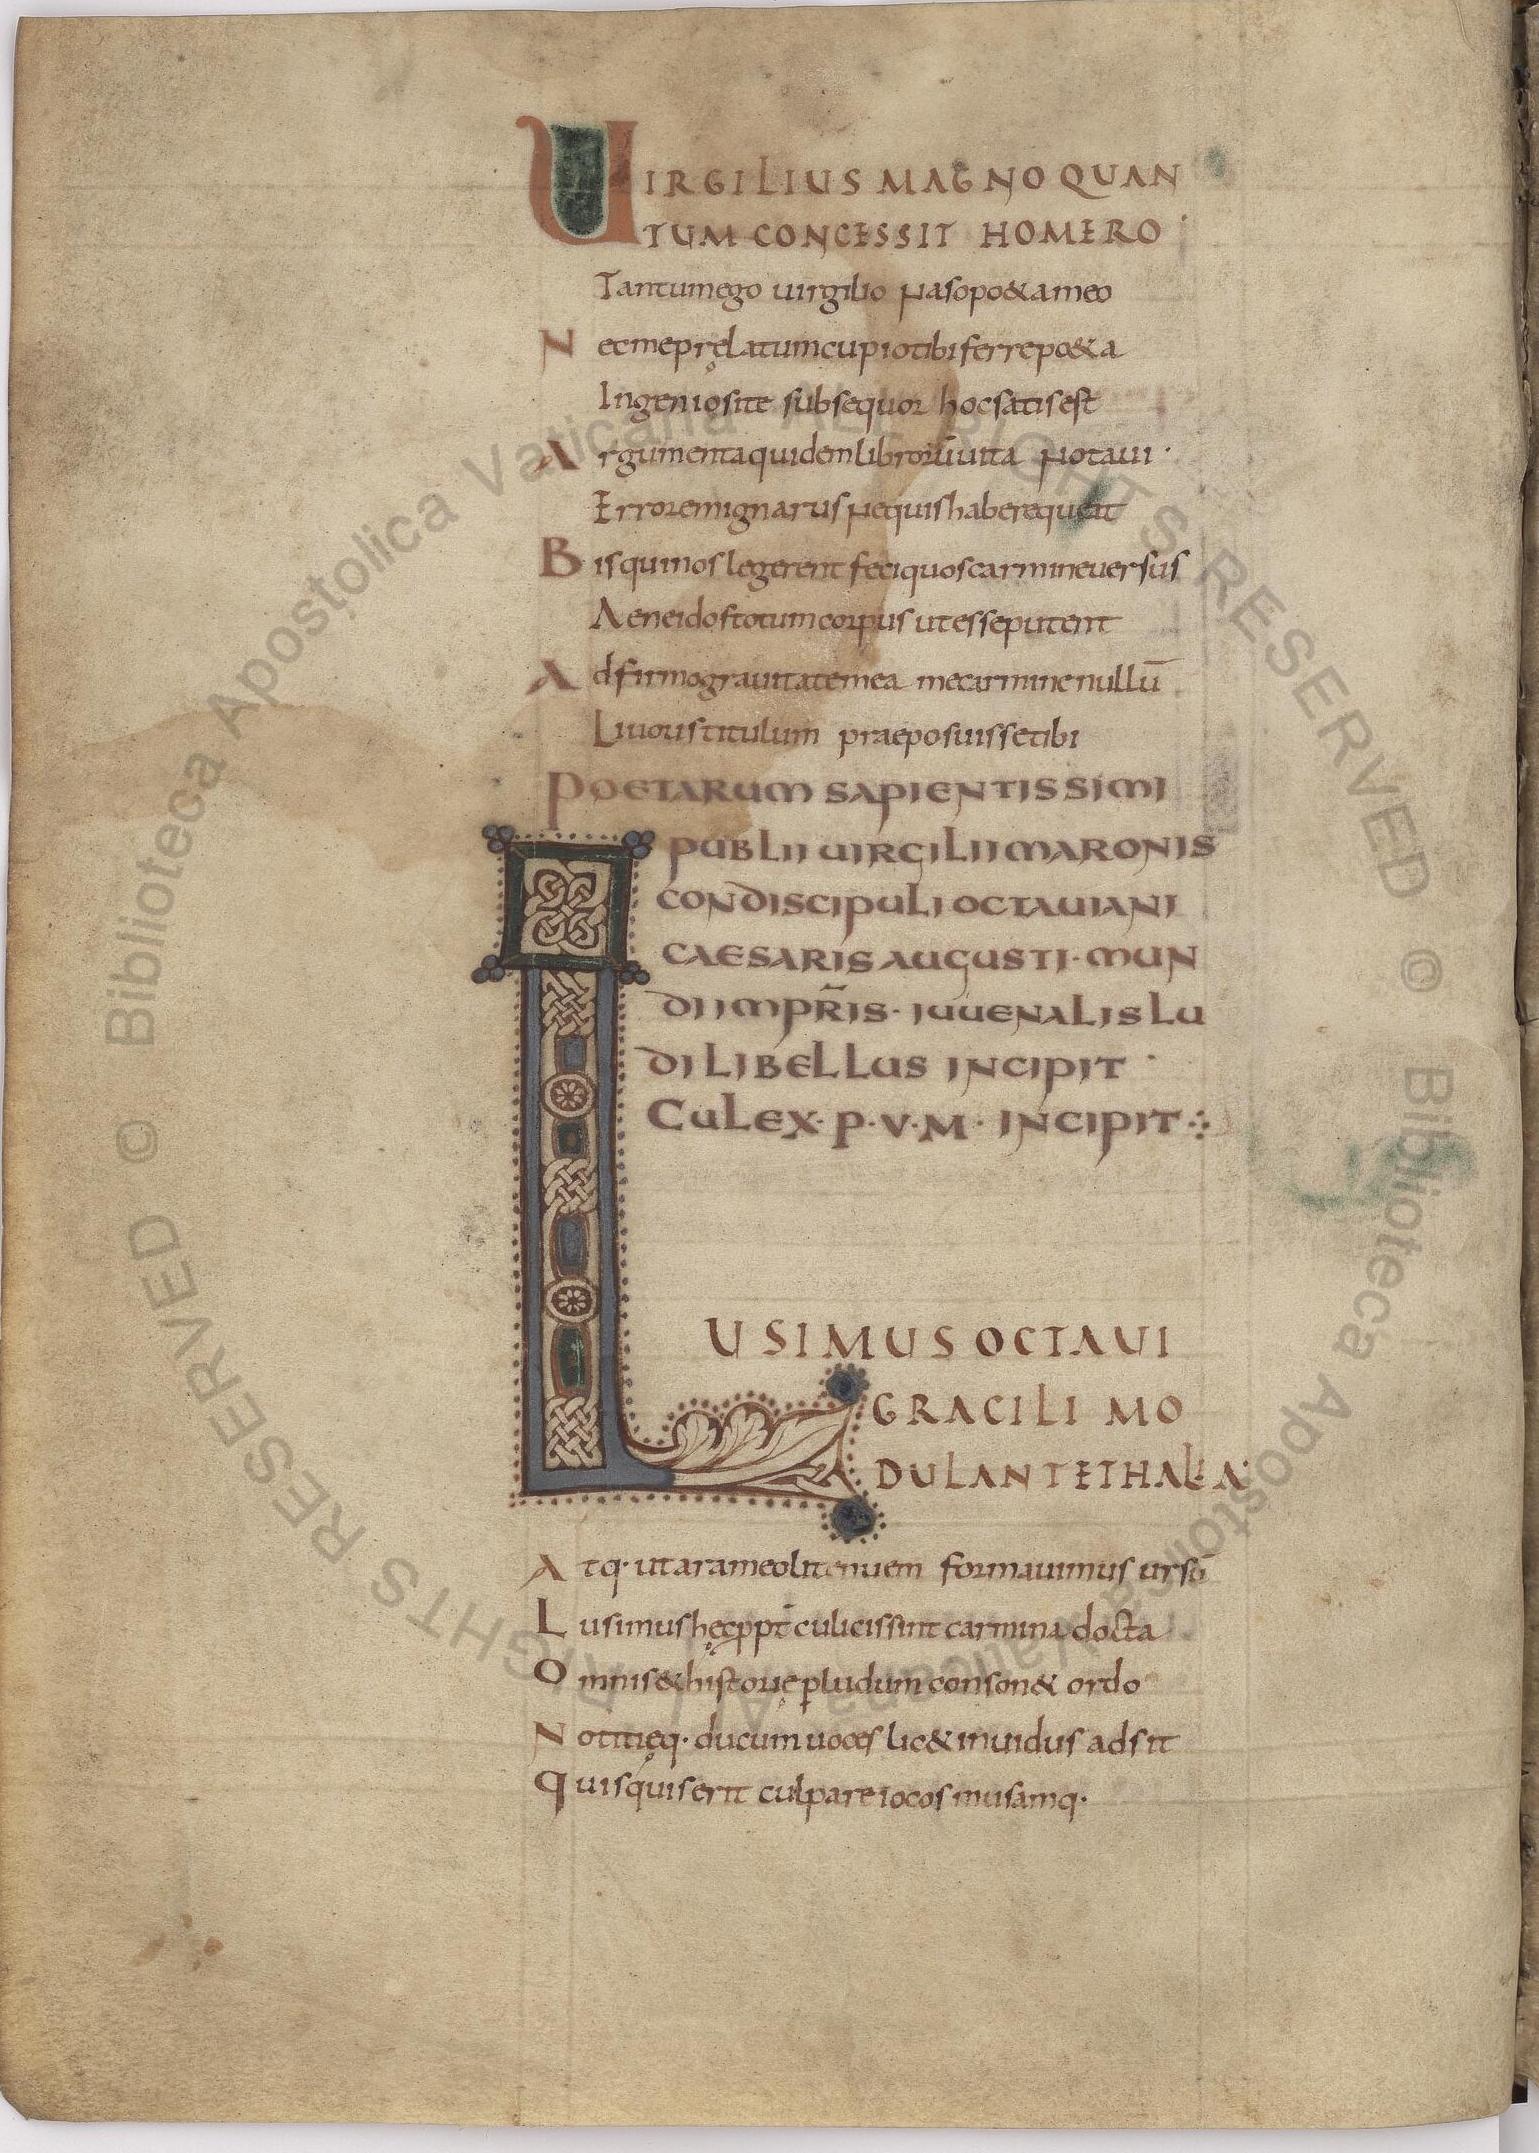 UIRGILIUS MAGNO QUAN
TUM CONCESSIT HOMERO
Tantumego uirgilio nasopo&ameo
Necmepręlatumcupiotibiferrepo&a
Ingeniosite subsequor hocsatisest
Argumentaquidemlibrorūuita notaui·
Erroremignarus nequishaberequeat
Bisquinos legerent feciquoscarmineuersus
Aeneidostotumcorpus utesseputent
Adfirmograuitatemea mecarminenullū
Liuoristitulum praeposuissetibi
POETARUM SAPIENTISSIMI
PUBLII UIRGILII MARONIS
CONDISCIPULI OCTAUIANI
CAESARIS AUGUSTI· MUN
DI IMPR̄IS· IUUENALIS LU
DI LIBELLUS INCIPIT
CULEX· P·V·M· INCIPIT
LUSIMUS OCTAUI
GRACILI MO
DULANTE THALIA·
Atq· utarameolitenuem formauimus ursū
Lusimus hęcppt̄ culicissint carmina docta
Omnis&historię pludum conson& ordo
Notitięq· ducum uoces lic& inuidus adsit
Quisquiserit culpare iocos musamq·
© Biblioteca Apostolica Vaticana ALL RIGHTS RESERVED
© Biblioteca Apostolica Vaticana ALL RIGHTS RESERVED